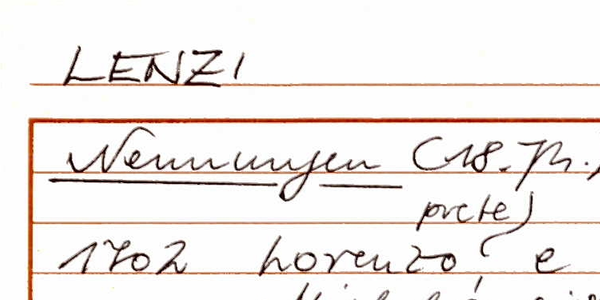 LENZI
Nennungen (18. Jh.,
prete)
1702 Lorenzo e